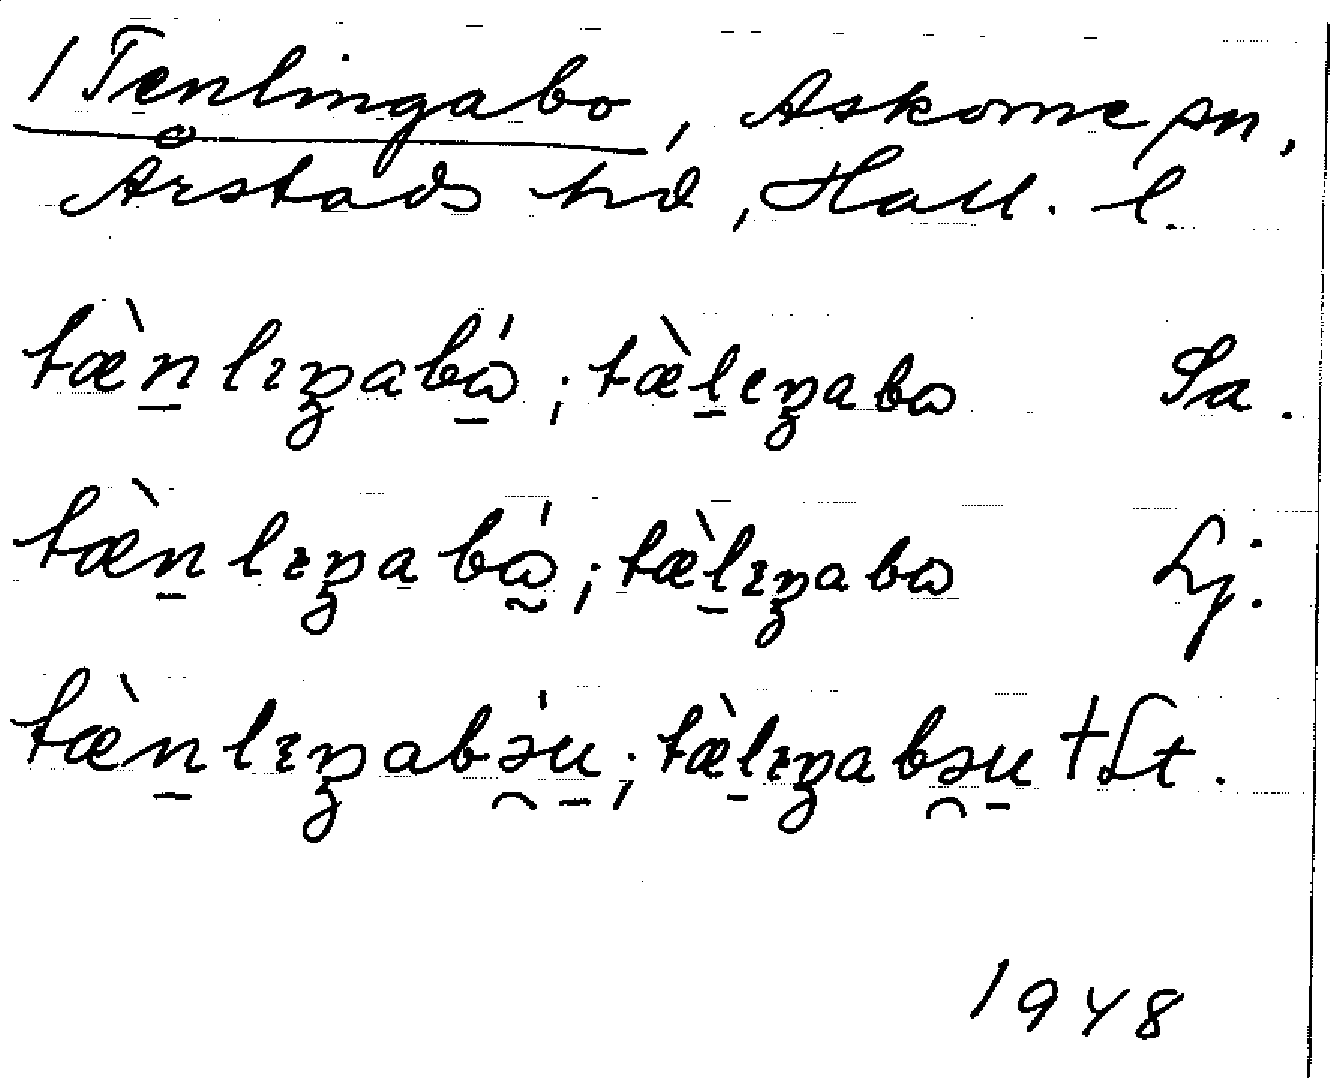 1 Tenlingabo, Askome sn,
Årstads hd, Hall. l.
tæ̀n̲lɪŋabɷ̲́; tæ̀l̲eŋabɷ Sa.
tæ̀n̲lɪŋabɷ̰́; tæ̀l̲ɪŋabɷ Lj.
tæ̀n̲lɪŋabə̯́u̲; tæ̀l̲ɪŋabə̯u̲ †Lt.
1948